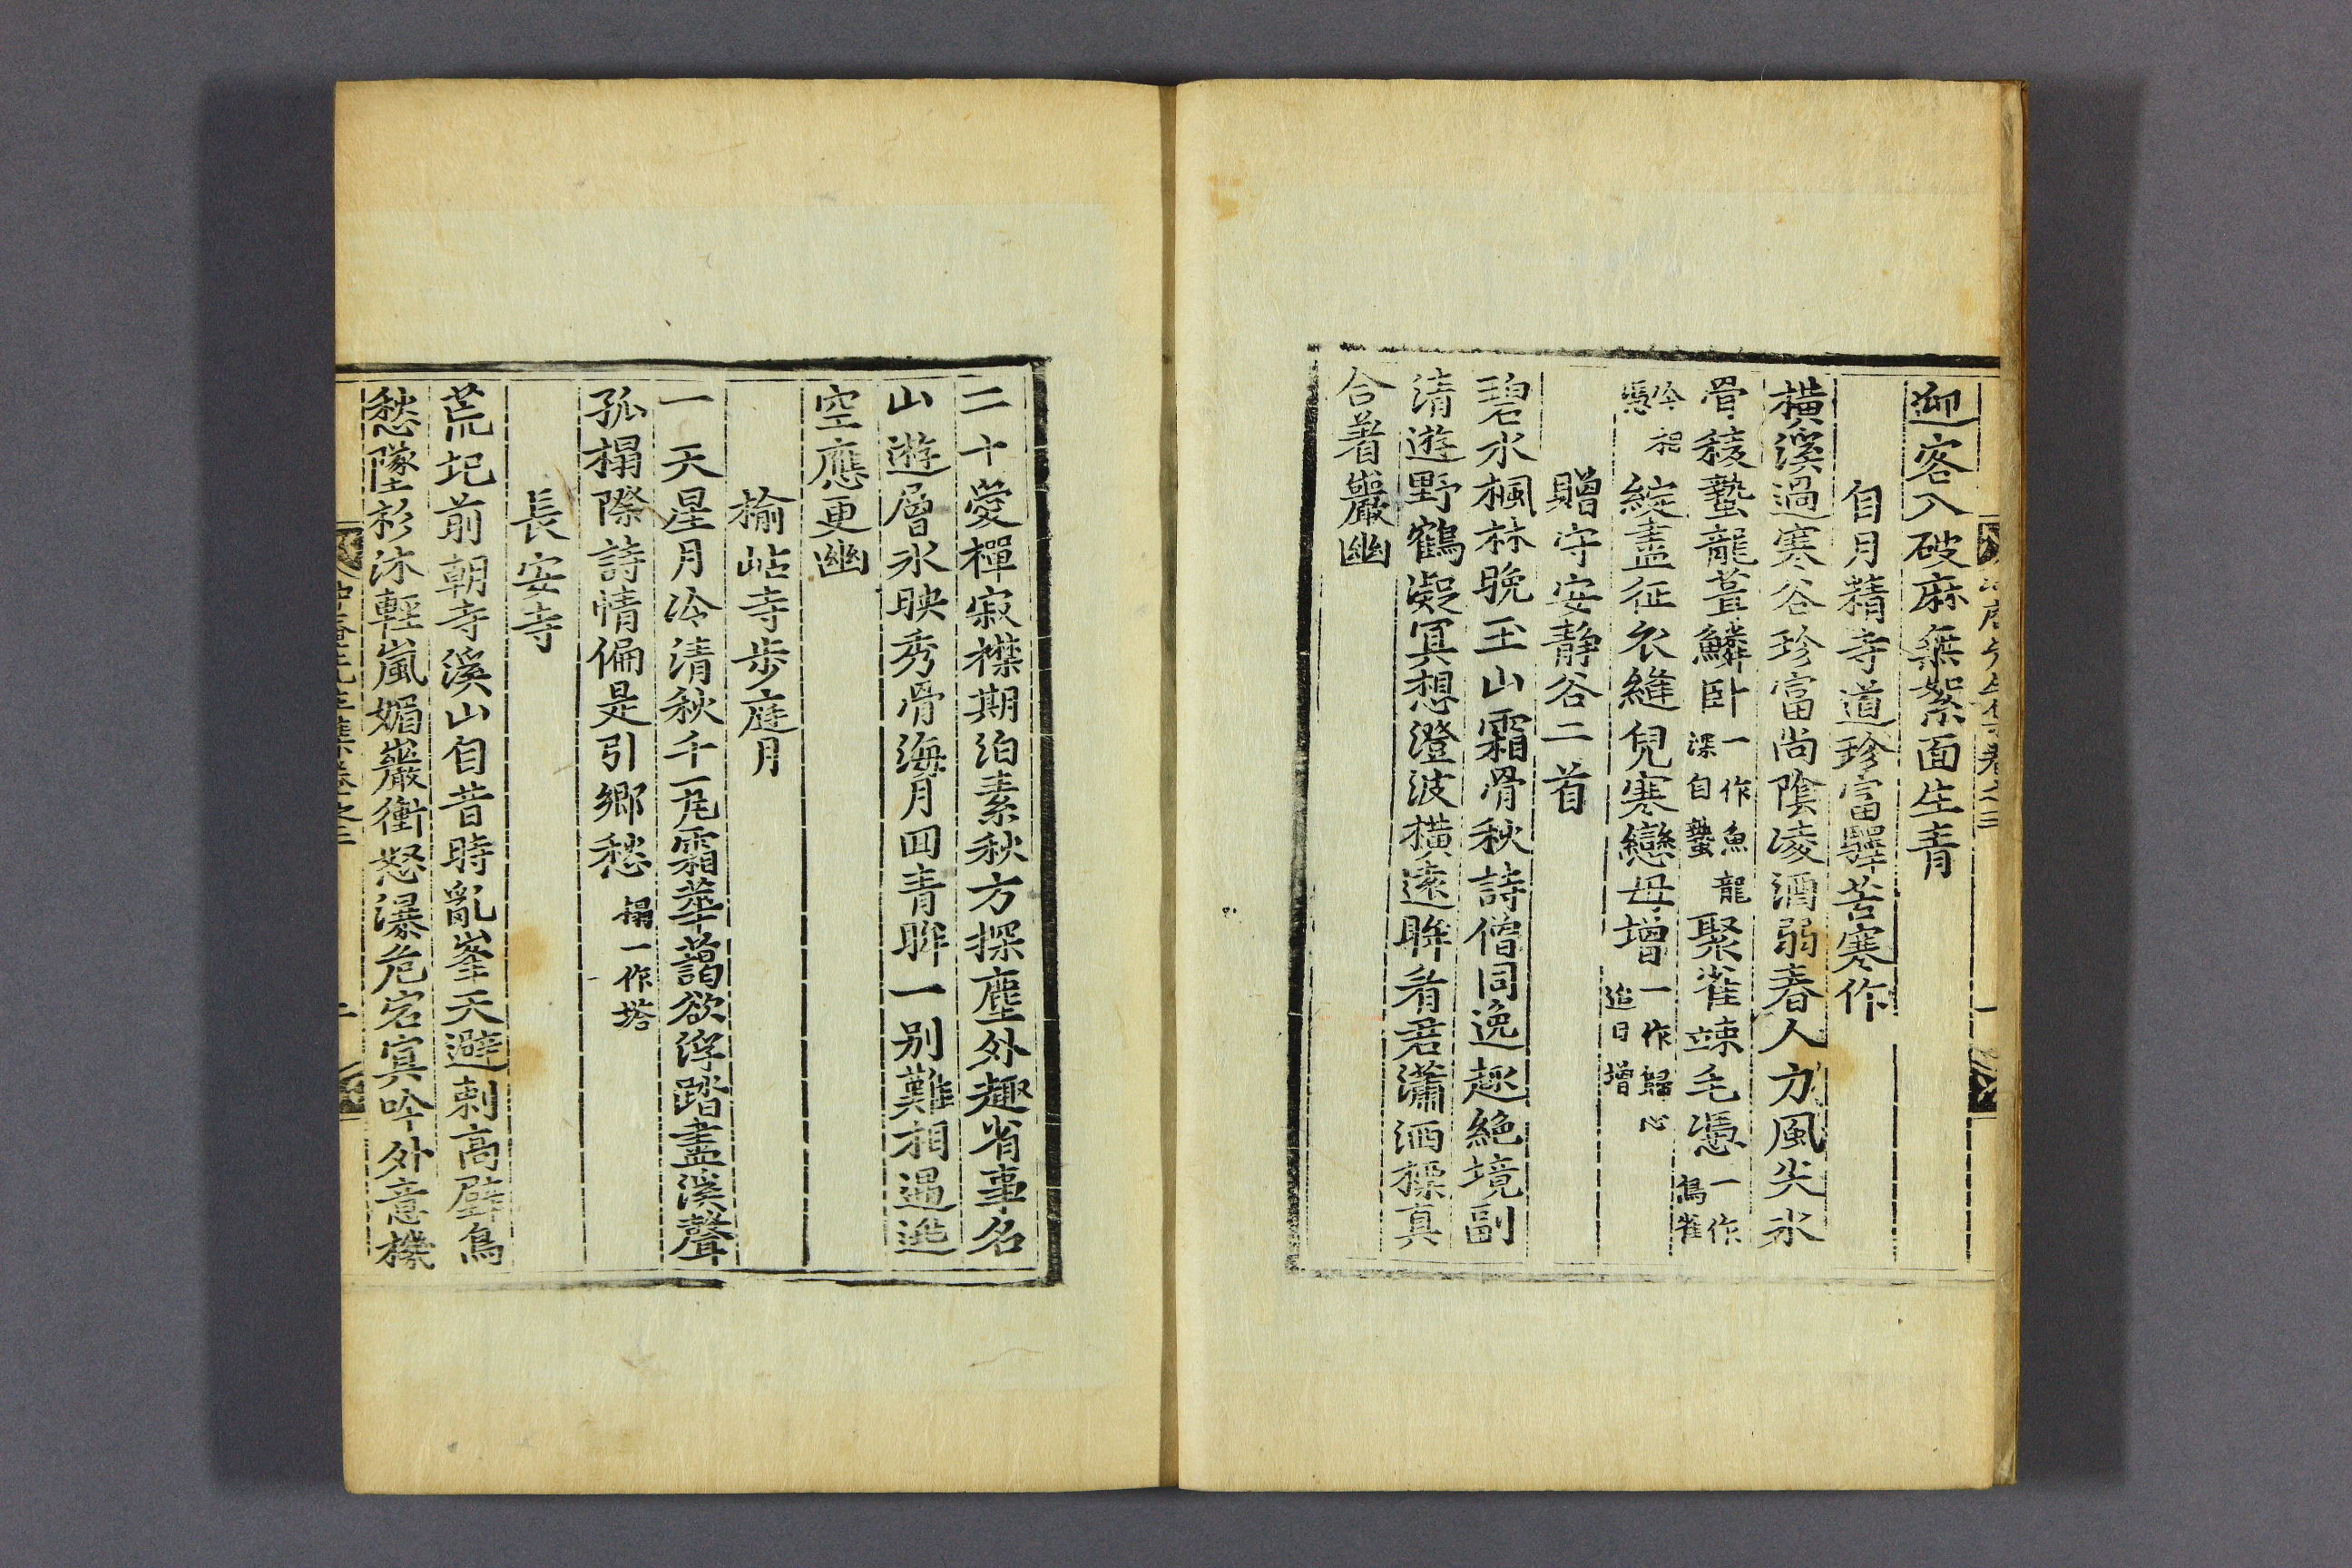 迎客入破麻無絮面生青
自月精寺道珍富驛苦寒作
橫溪過寒谷珍富尚陰凌酒弱春人力風尖氷
骨稜蟄龍葺鱗卧一作魚龍深自蟄聚雀竦毛凭一作鳥雀
綻盡征衣縫兒寒戀母增一作歸心近日增
贈守安靜谷二首
碧水楓林晩玉山霜骨秋詩僧同逸趣絶境副
清遊野鶴凝冥想澄波橫遠眸看君瀟洒操真
合着巖幽
二十愛禪寂襟期泊素秋方探塵外趣省事名
山遊層氷映秀骨海月回青眸一别難相遇逃
空應更幽
榆岾寺步庭月
一天星月冷清秋千瓦霜華藹欲浮踏盡溪聲
孤榻際詩情偏是引鄉愁榻一作塔
長安寺
荒圯前朝寺溪山自昔時亂峯天避刺高壁鳥
愁墜衫沐輕嵐媚巖衝怒瀑危宕寘吟外意機